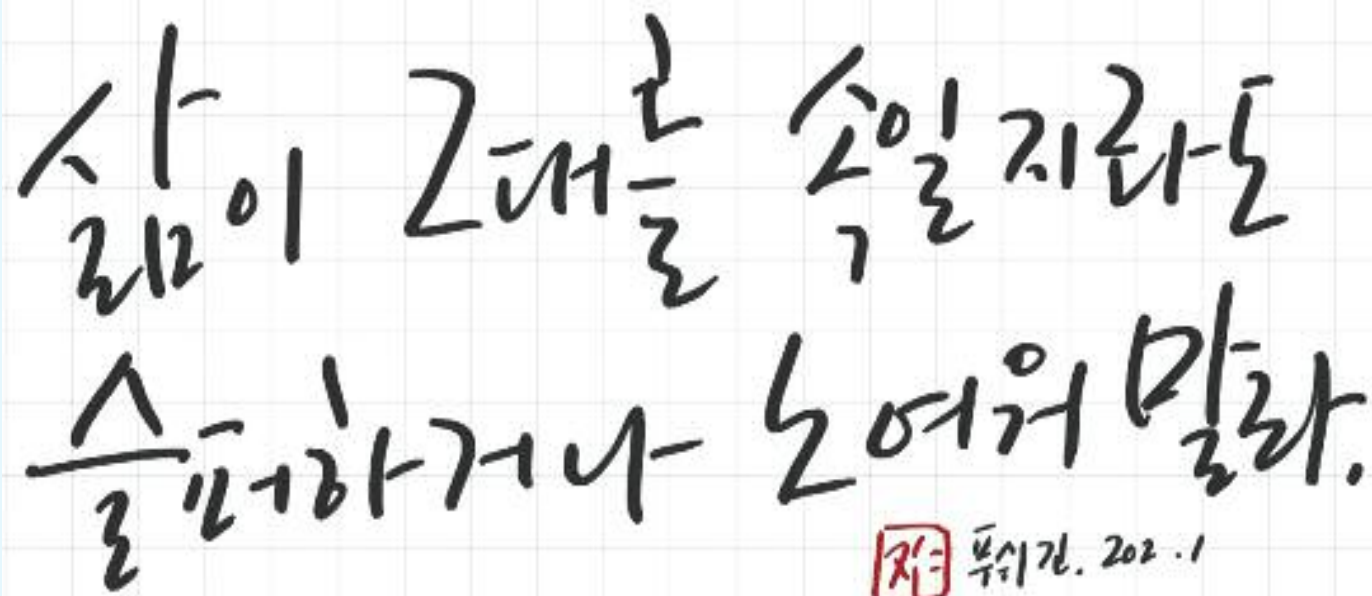 삶이 그대를 속일지라도
슬퍼하거나 노여워 말라.
푸쉬킨. 202.1